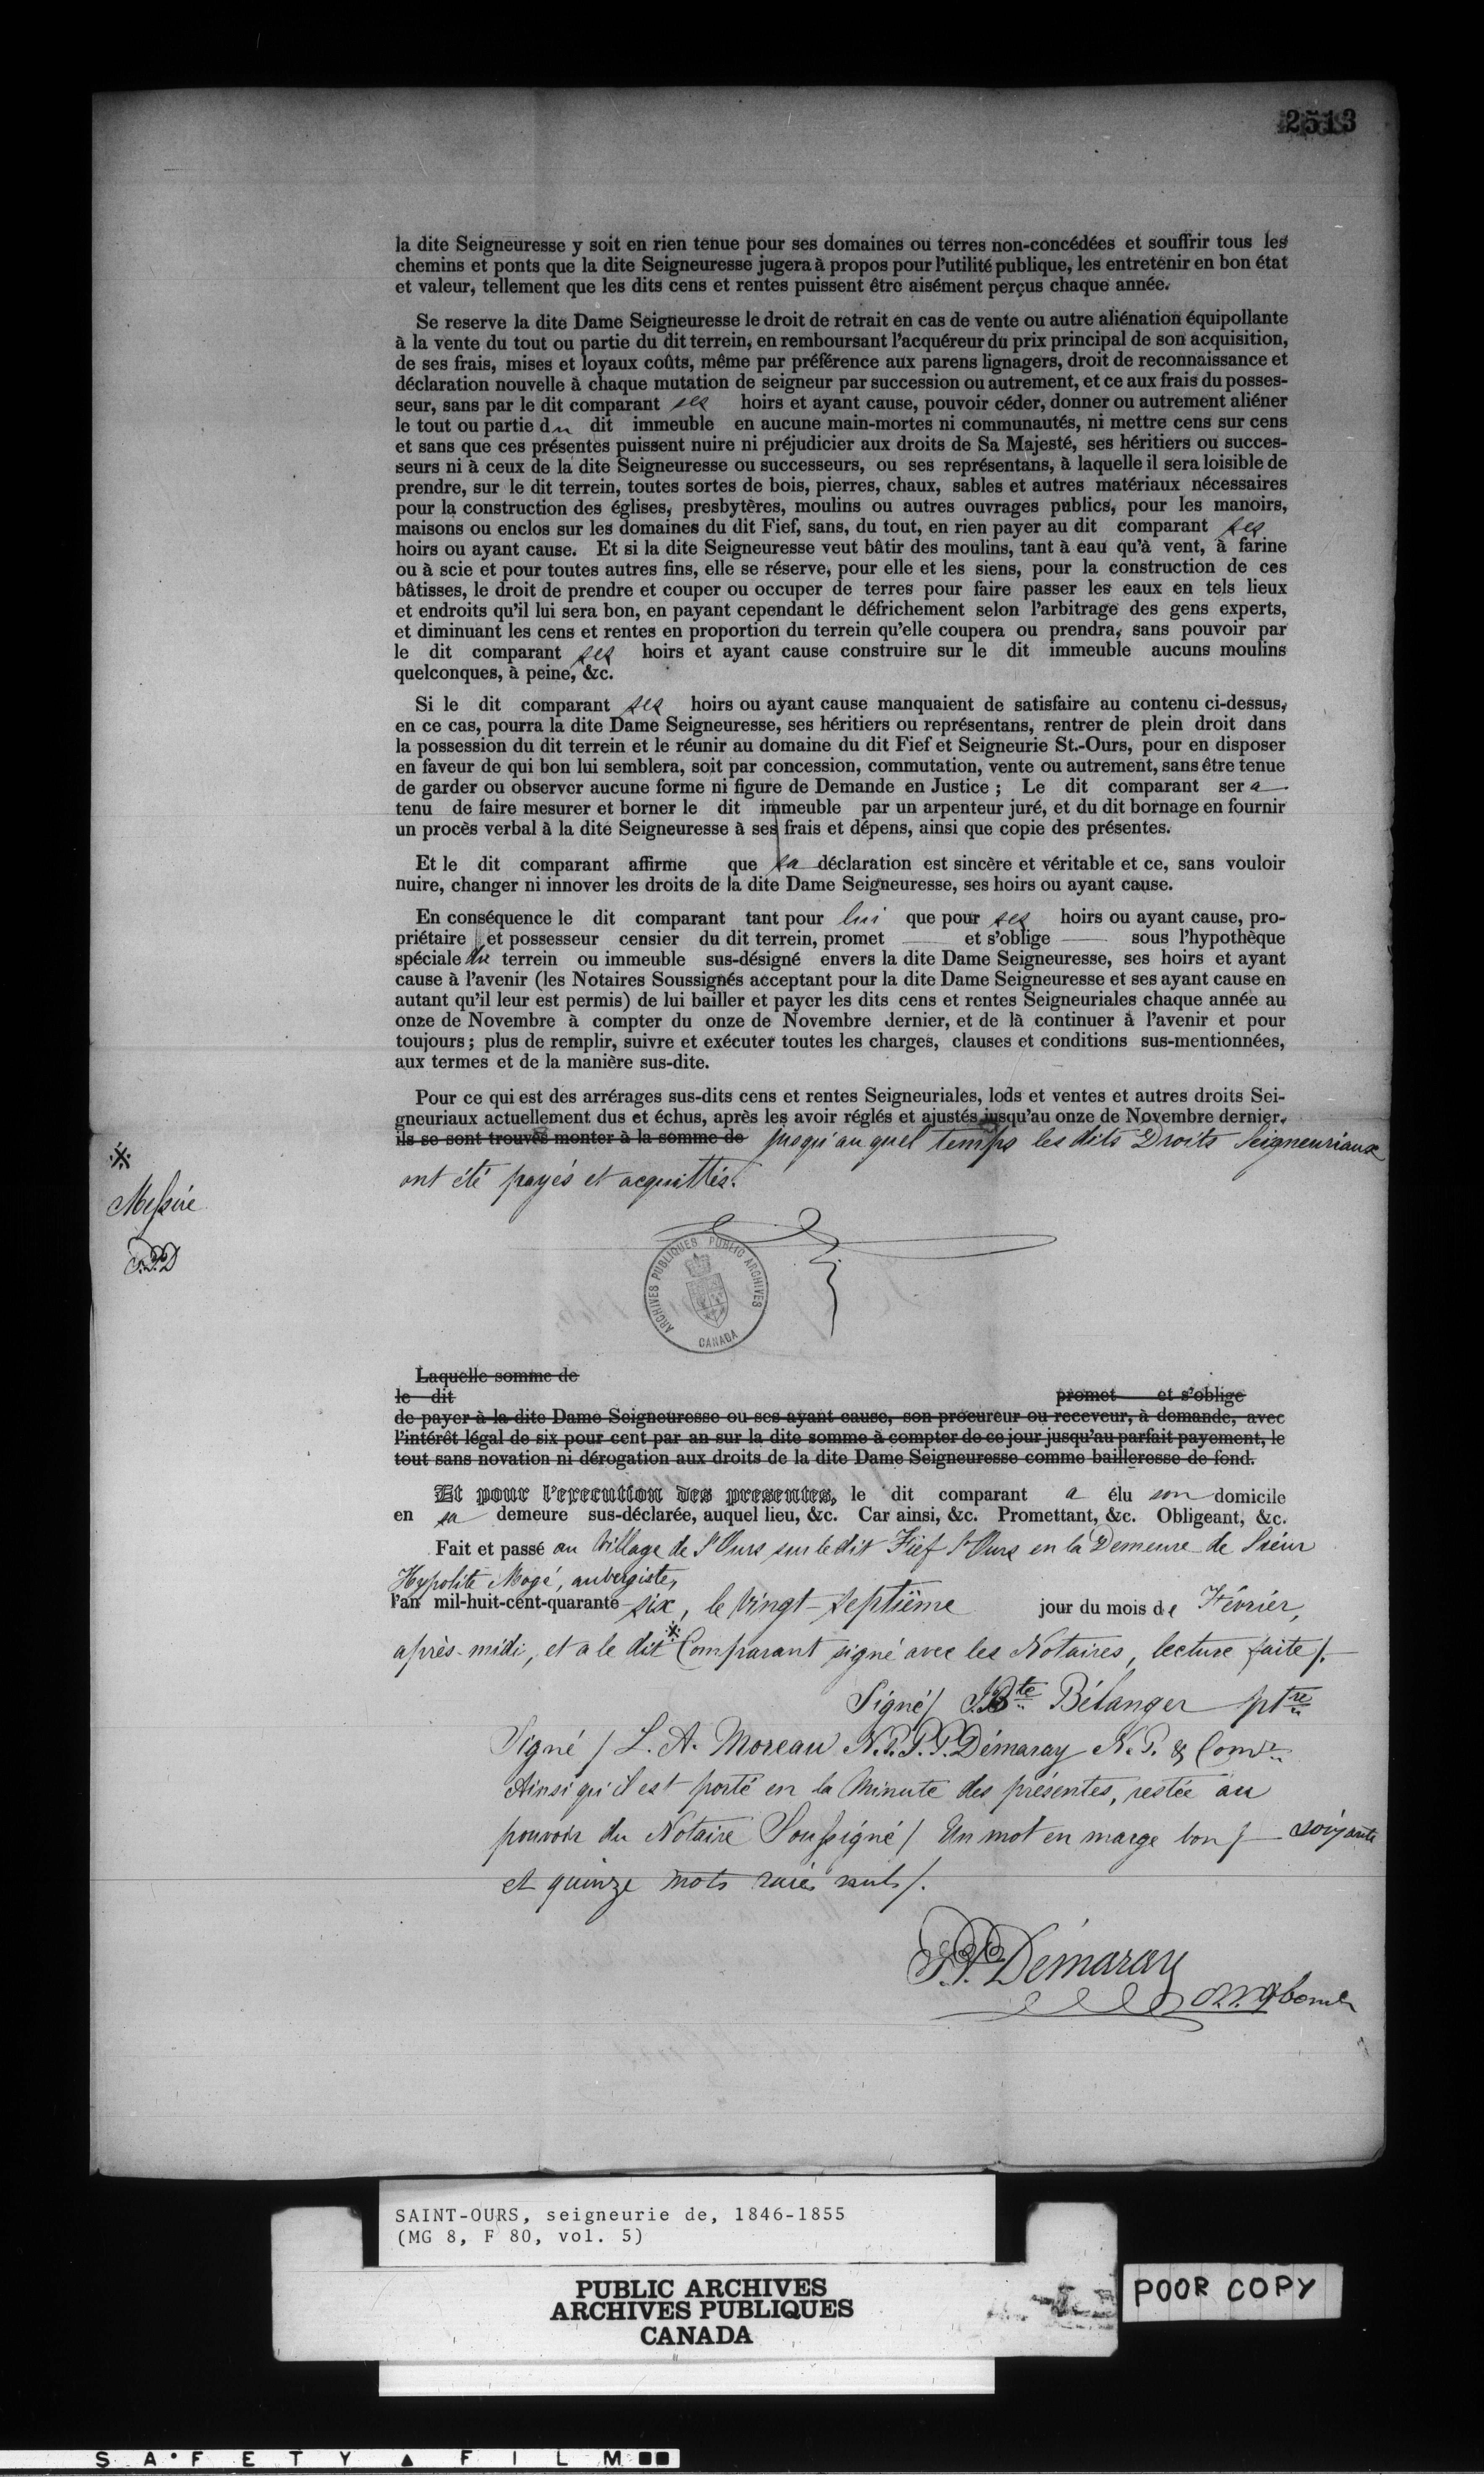 2513
la dite Seigneuresse y soit en rien tenue pour ses domaines ou terres non-concédées et souffrir tous les
chemins et ponts que la dite Seigneuresse jugera à propos pour l'utilité publique, les entretenir en bon état
et valeur, tellement que les dits cens et rentes puissent être aisément perçus chaque année.
Se reserve la dite Dame Seigneuresse le droit de retrait en cas de vente ou autre aliénation équipollante
à la vente du tout ou partie du dit terrein, en remboursant l'acquéreur du prix principal de son acquisition,
de ses frais, mises et loyaux coûts, même par préférence aux parens lignagers, droit de reconnaissance et
déclaration nouvelle à chaque mutation de seigneur par succession ou autrement, et ce aux frais du posses-
seur, sans par le dit comparant ses hoirs et ayant cause, pouvoir céder, donner ou autrement aliéner
le tout ou partie du dit immeuble en aucune main-mortes ni communautés, ni mettre cens sur cens
et sans que ces présentes puissent nuire ni préjudicier aux droits de Sa Majesté, ses héritiers ou succes-
seurs ni à ceux de la dite Seigneuresse ou successeurs, ou ses représentans, à laquelle il sera loisible de
prendre, sur le dit terrein, toutes sortes de bois, pierres, chaux, sables et autres matériaux nécessaires
pour la construction des églises, presbytères, moulins ou autres ouvrages publics, pour les manoirs,
maisons ou enclos sur les domaines du dit Fief, sans, du tout, en rien payer au dit comparant ses
hoirs ou ayant cause. Et si la dite Seigneuresse veut bâtir des moulins, tant à eau qu'à vent, à farine
ou à scie et pour toutes autres fins, elle se réserve, pour elle et les siens, pour la construction de ces
bâtisses, le droit de prendre et couper ou occuper de terres pour faire passer les eaux en tels lieux
et endroits qu'il lui sera bon, en payant cependant le défrichement selon l'arbitrage des gens experts,
et diminuant les cens et rentes en proportion du terrein qu'elle coupera ou prendra, sans pouvoir par
le dit comparant ses hoirs et ayant cause construire sur le dit immeuble aucuns moulins
quelconques, à peine, &c.
Si le dit comparant ses hoirs ou ayant cause manquaient de satisfaire au contenu ci-dessus,
en ce cas, pourra la dite Dame Seigneuresse, ses héritiers ou représentans, rentrer de plein droit dans
la possession du dit terrein et le réunir au domaine du dit Fief et Seigneurie St.-Ours, pour en disposer
en faveur de qui bon lui semblera, soit par concession, commutation, vente ou autrement, sans être tenue
de garder ou observer aucune forme ni figure de Demande en Justice ; Le dit comparant sera
tenu de faire mesurer et borner le dit immeuble par un arpenteur juré, et du dit bornage en fournir
un procès verbal à la dite Seigneuresse à ses frais et dépens, ainsi que copie des présentes.
Et le dit comparant affirme que sa déclaration est sincère et véritable et ce, sans vouloir
nuire, changer ni innover les droits de la dite Dame Seigneuresse, ses hoirs ou ayant cause.
En conséquence le dit comparant tant pour lui que pour ses hoirs ou ayant cause, pro-
priétaire et possesseur censier du dit terrein, promet et s'oblige sous l'hypothèque
spéciale du terrein ou immeuble sus-désigné envers la dite Dame Seigneuresse, ses hoirs et ayant
cause à l'avenir (les Notaires Soussignés acceptant pour la dite Dame Seigneuresse et ses ayant cause en
autant qu'il leur est permis) de lui bailler et payer les dits cens et rentes Seigneuriales chaque année au
onze de Novembre à compter du onze de Novembre dernier, et de là continuer à l'avenir et pour
toujours ; plus de remplir, suivre et exécuter toutes les charges, clauses et conditions sus-mentionnées,
aux termes et de la manière sus-dite.
Pour ce qui est des arrérages sus-dits cens et rentes Seigneuriales, lods et ventes et autres droits Sei-
gneuriaux actuellement dus et échus, après les avoir réglés et ajustés jusqu'au onze de Novembre dernier.
ils se sont trouvés monter à la somme de jusqu'au quel temps les dits Droits Seigneuriaux
ont été payés et acquittés.
※
Messire
ARCHIVES PUBLIQUES PUBLIC ARCHIVES
CANADA
Laquelle somme de
le dit promet et s'oblige
de payer à la dite Dame Seigneuresse ou ses ayant cause, son procureur ou receveur, à demande, avec
l'intérêt légal de six pour cent par an sur la dite somme à compter de ce jour jusqu'au parfait payement, le
tout sans novation ni dérogation aux droits de la dite Dame Seigneuresse comme bailleresse de fond.
Et pour l'execution des presentes, le dit comparant a élu son domicile
en sa demeure sus-déclarée, auquel lieu, &c. Car ainsi, &c. Promettant, &c. Obligeant, &c.
Fait et passé au Village de St Ours sur le dit Fief St Ours en la Demeure de Sieur
Hypolite Mogé, aubergiste,
l'an mil-huit-cent-quarante-six, le Vingt-Septième jour du mois de Février,
après-midi, et a le dit ※ Comparant signé avec les Notaires, lecture faite/.
Signé/ J. Bte Bélanger ptre
Signé / L. A. Moreau N.P. P.P. Démaray N.P. & Comre
Ainsi qu'il est porté en la Minute des présentes, restée au
pouvoir du Notaire Soussigné/ Un mot en marge bon/ soixante
et quinze mots raiés nuls/.
P.P. Démaray
SAINT-OURS, seigneurie de, 1846-1855
(MG 8, F 80, vol. 5)
PUBLIC ARCHIVES
ARCHIVES PUBLIQUES
CANADA
POOR COPY
SAFETY ▲ FILM ■■